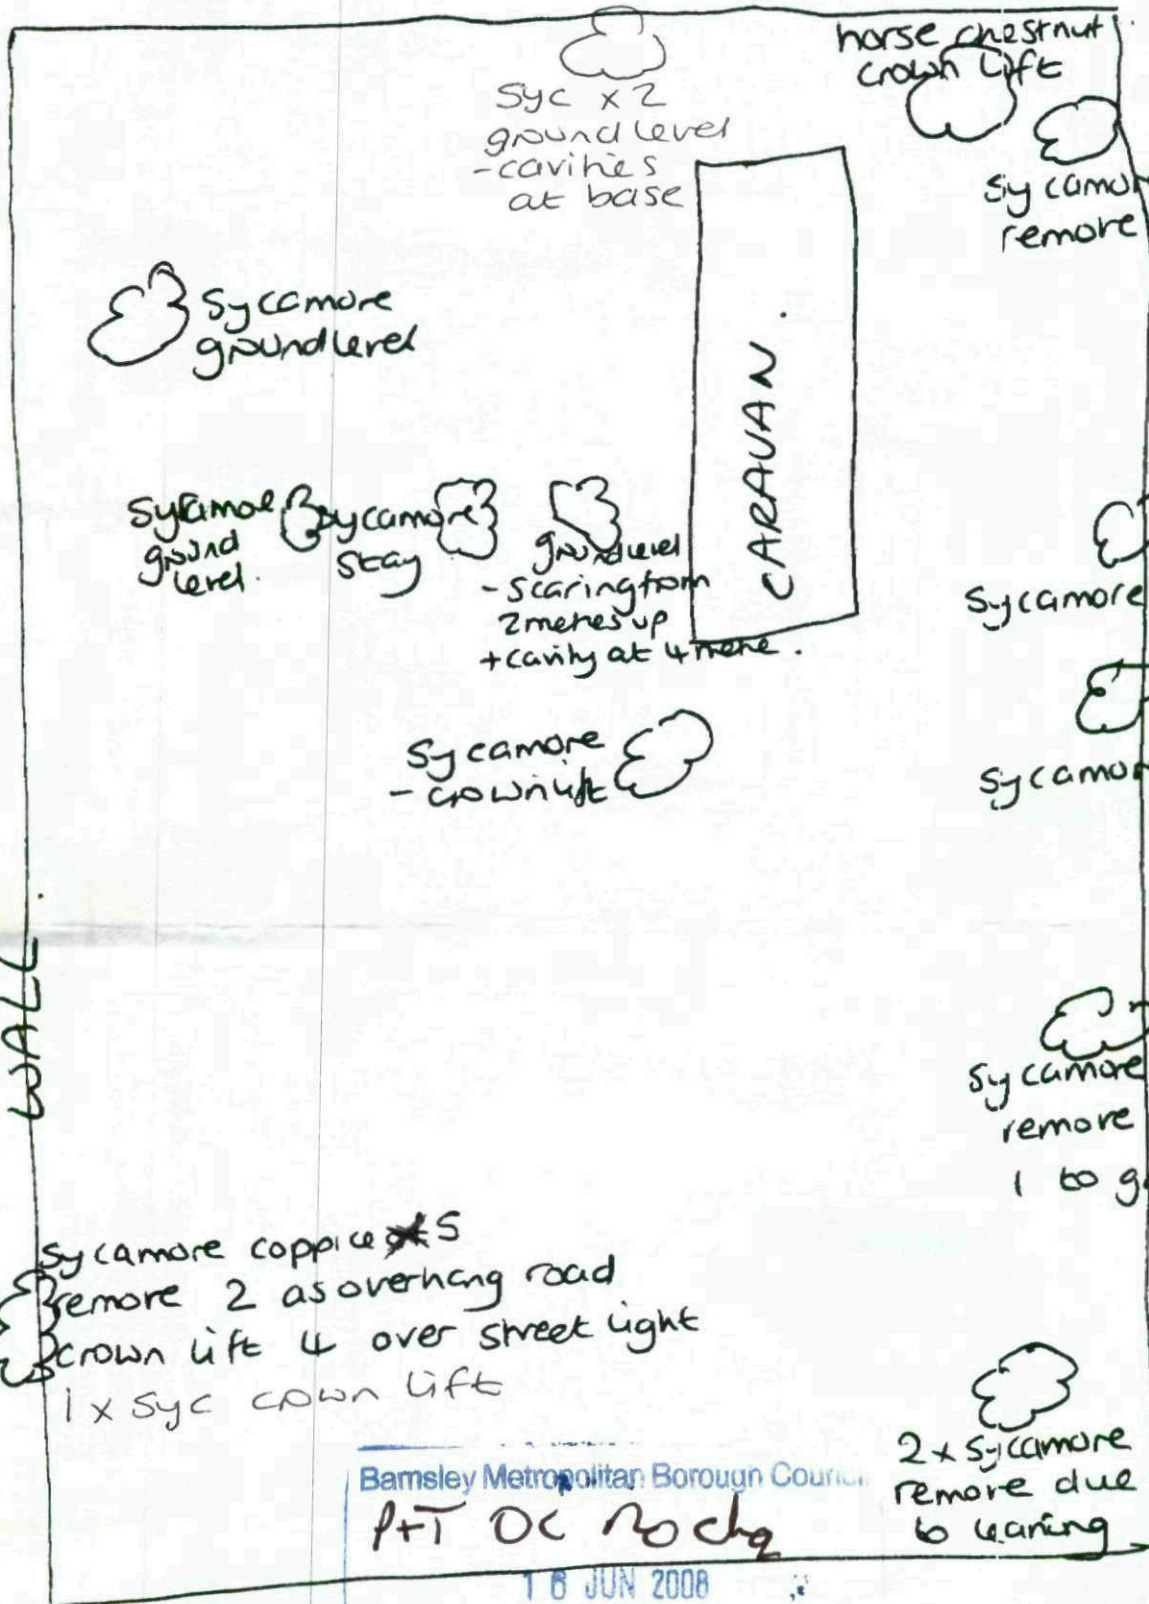 horse chestnut
crown lift
Syc x 2
ground level
- cavities
at base
Sycamor
remove
Sycamore
ground level
CARAVAN.
Sycamore
ground
level.
Sycamore
stay
ground level
- scaring from
2 metres up
+ cavity at 4 metre.
Sycamore
Sycamore
- crown lift
Sycamor
WALL
Sycamore
remove
1 to g
Sycamore coppice x 5
remove 2 as overhang road
crown lift 4 over street light
1 x syc crown lift
2 x Sycamore
remove due
to leaning
Barnsley Metropolitan Borough Counc
P+T DC No chq
16 JUN 2008